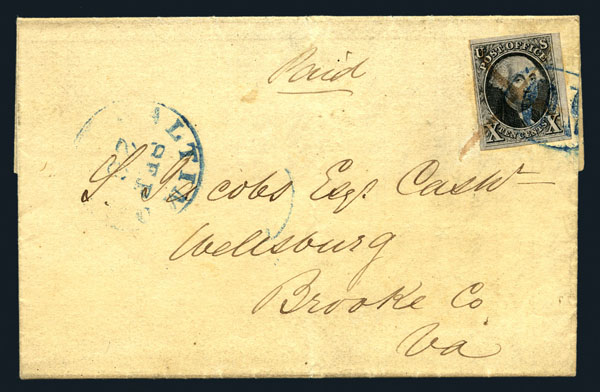 Paid
U S
POST OFFICE
X TEN CENTS X
ALTIM
S. Jacobs Esqr. Cashr
Wellsburg
Brooke Co
Va